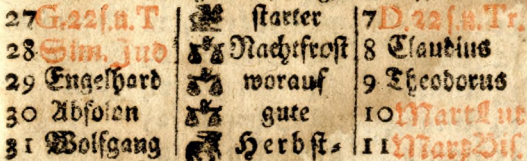 27 G. 22 s. n. T starker 7 D. 22 s. n. Tr.
28 Sim. Jud Nachtfrost 8 Claudius
29 Engelhard worauf 9 Theodorus
30 Absolon gute 10 Mart Lut
31 Wolfgang Herbst- 11 Mart Bis